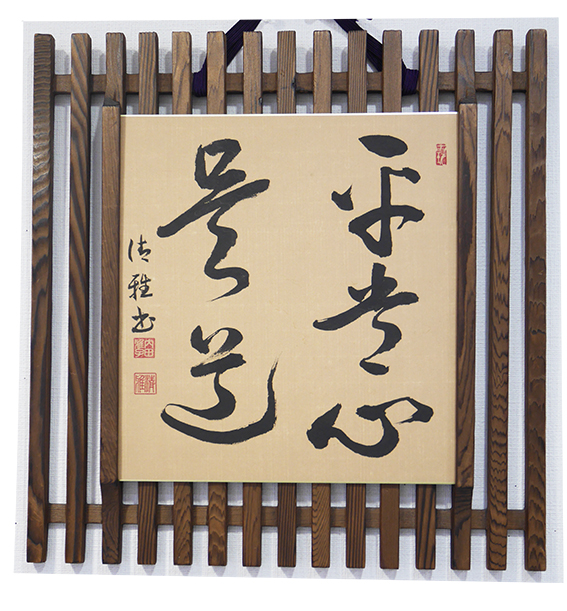 平常心
是道
清雅書